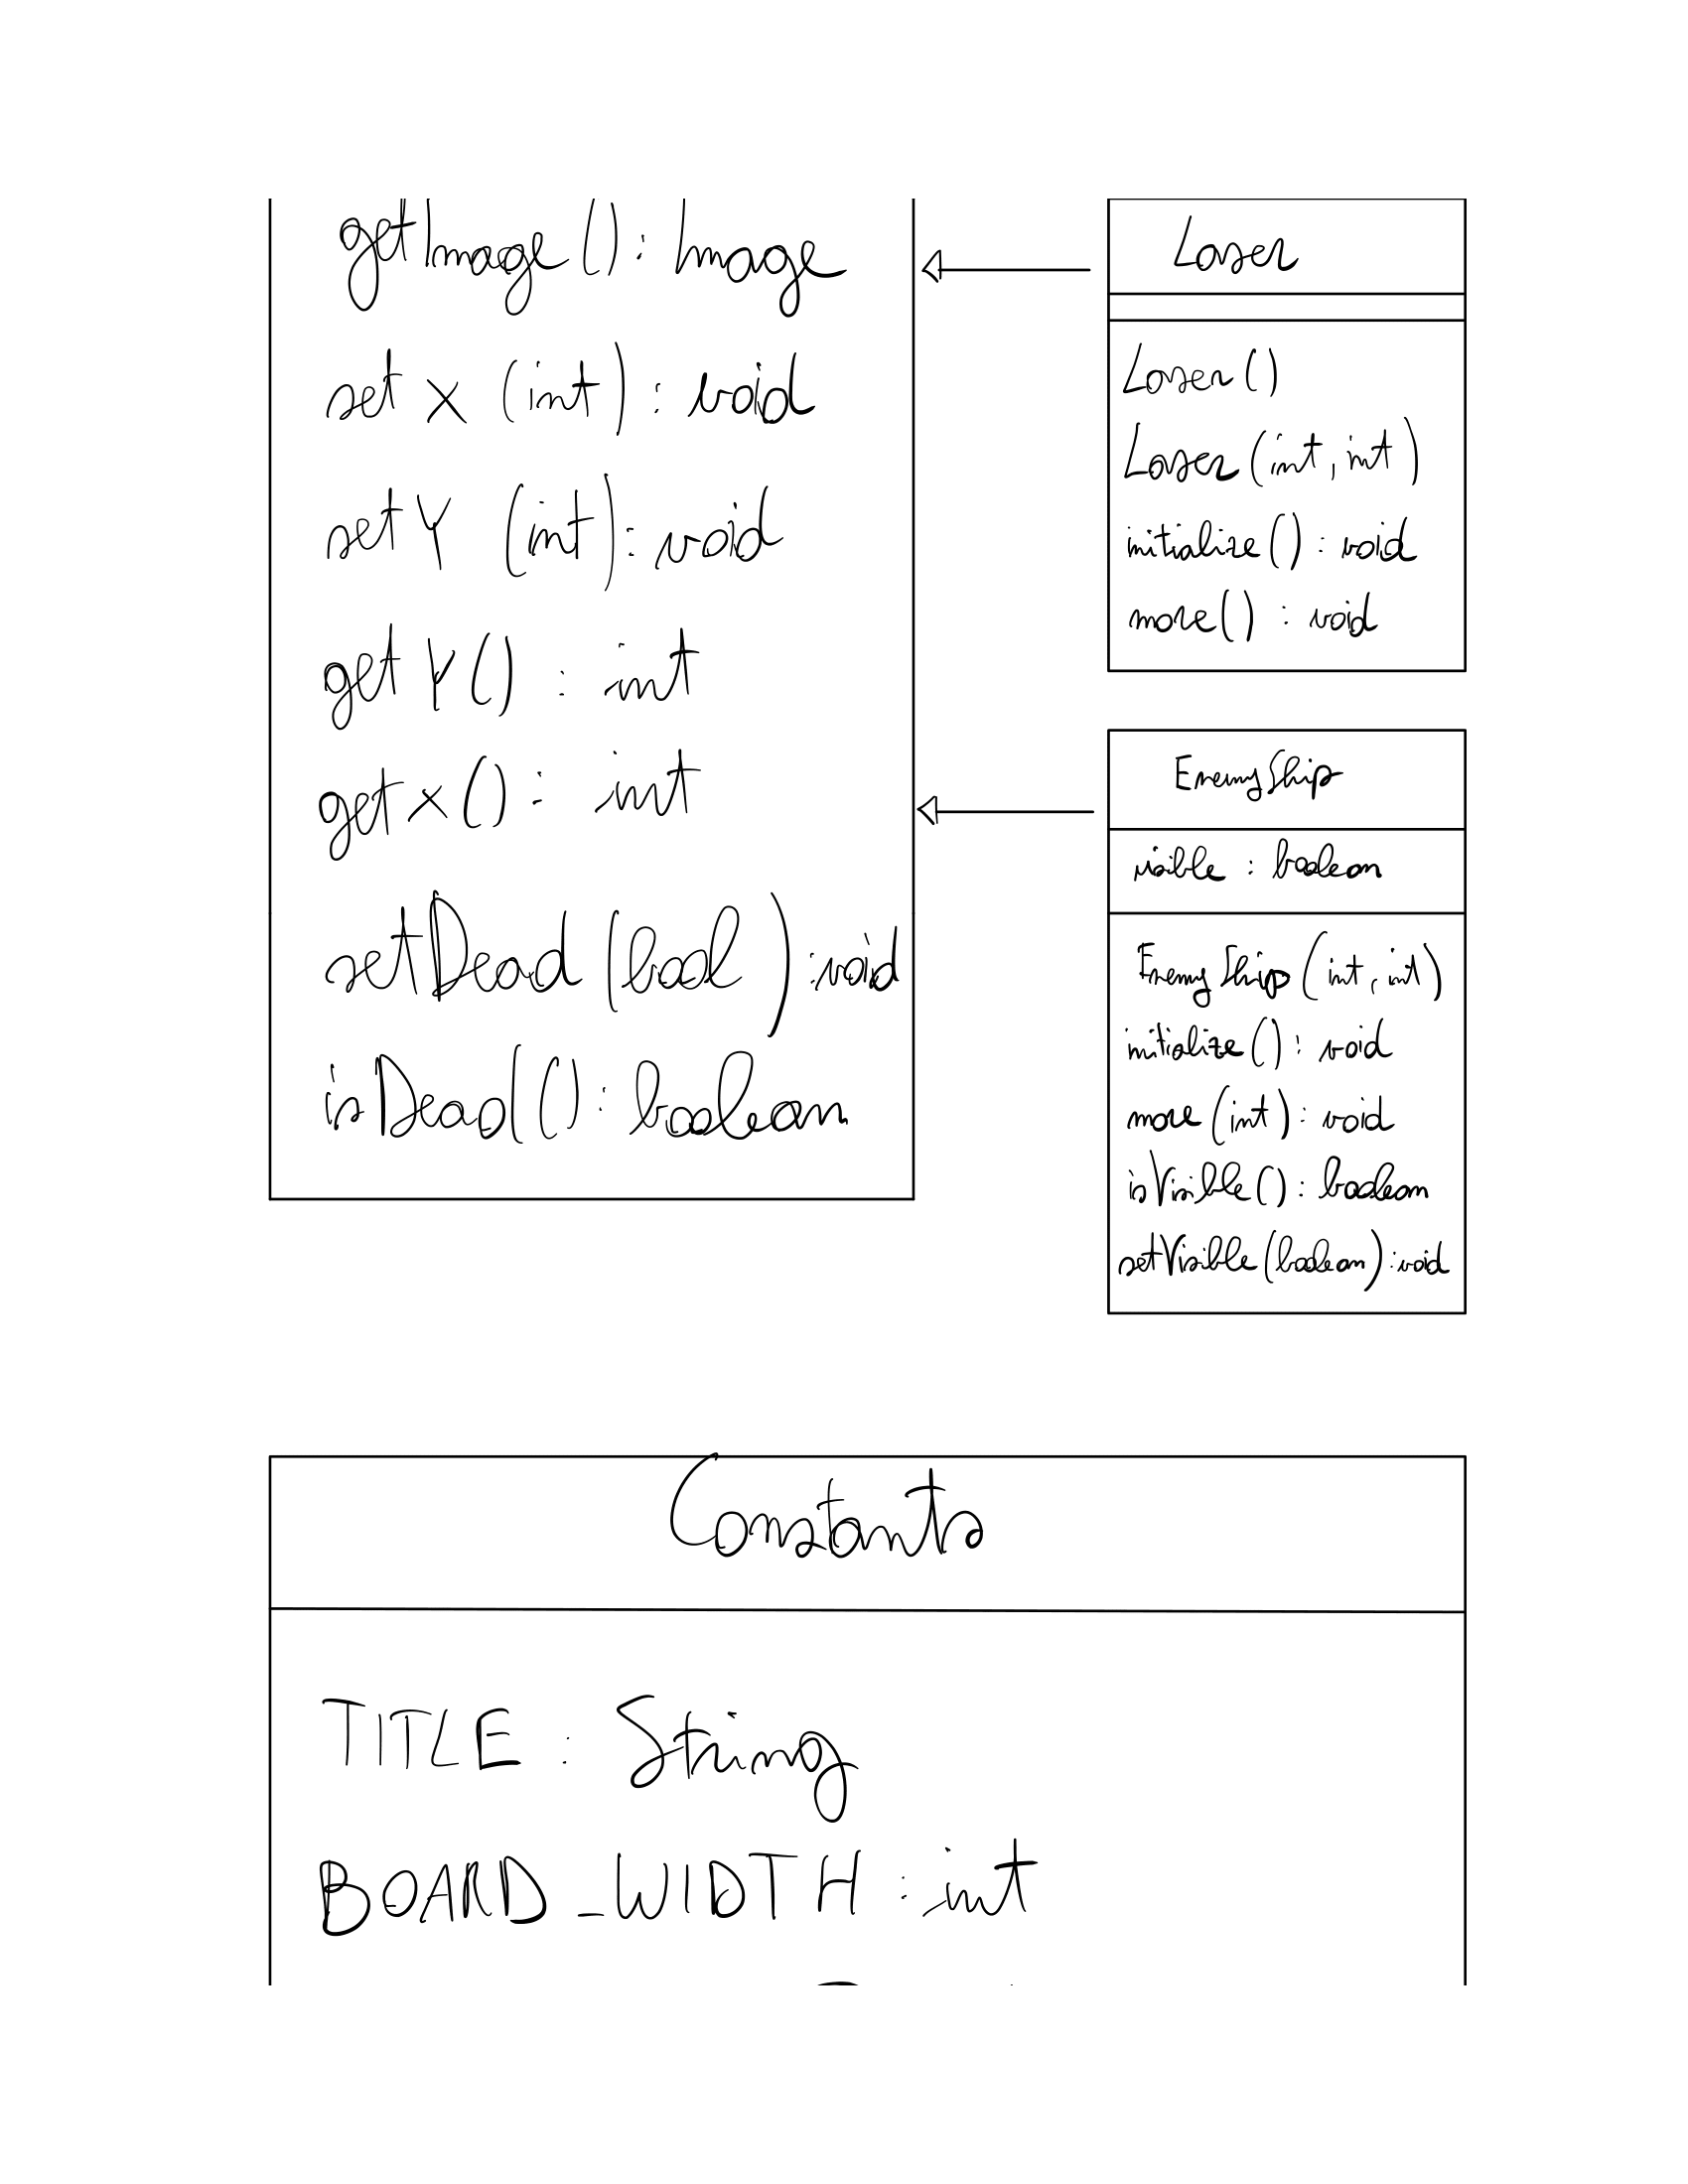 getImage() : Image
set x (int) : void
setY (int) : void
getY() : int
getx() : int
setDead (bool) : void
isDead() : boolean
Laser
Laser()
Laser(int, int)
initialize() : void
move() : void
EnemyShip
visible : boolean
EnemyShip(int, int)
initialize() : void
move(int) : void
isVisible() : boolean
setVisible(boolean) : void
Constants
TITLE : String
BOARD_WIDTH : int